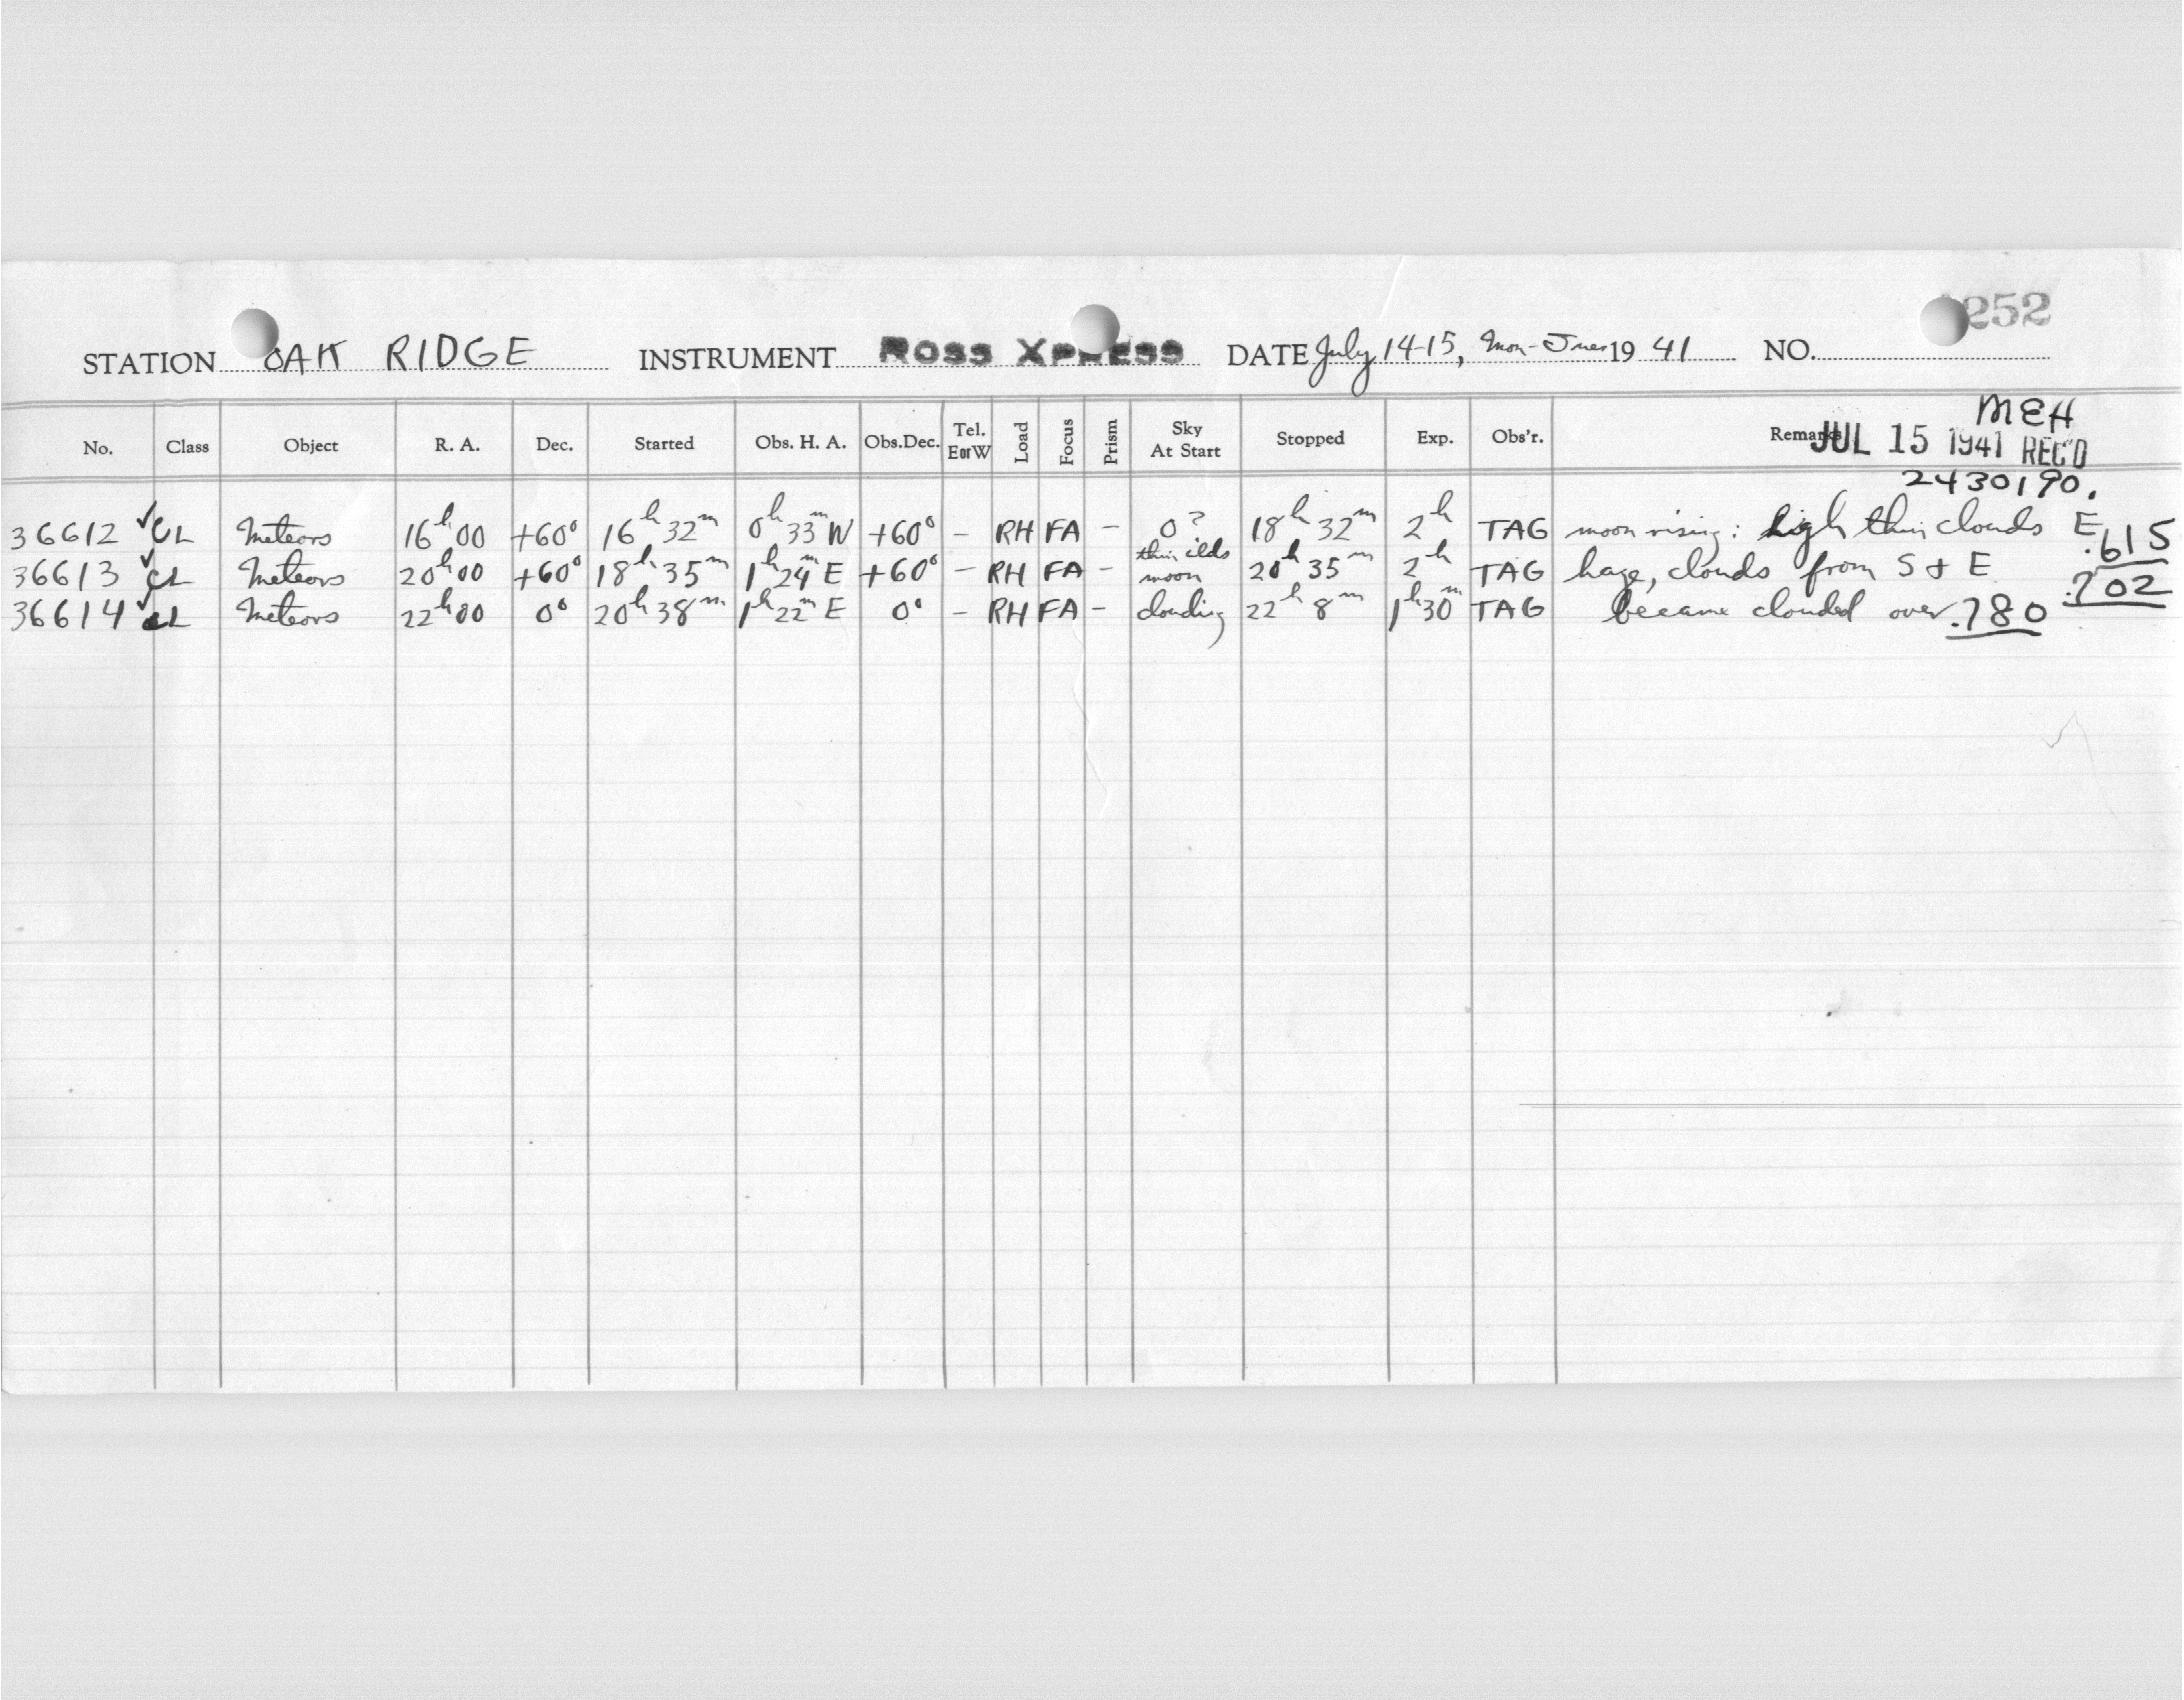 252
STATION OAK RIDGE INSTRUMENT ROSS XPRESS DATE July 14-15, Mon-Tues 19 41 NO.
MEH
No. Class Object R. A. Dec. Started Obs. H. A. Obs.Dec. Tel. E or W Load Focus Prism Sky At Start Stopped Exp. Obs'r. Remarks
JUL 15 1941 REC'D
2430190.
36612 ✓ CL Meteors 16h 00 +60° 16h 32m 0h 33m W +60° – RH FA – 0? 18h 32m 2h TAG moon rising: high thin clouds E .615
36613 ✓ CL Meteors 20h 00 +60° 18h 35m 1h 24m E +60° – RH FA – thin clds moon 20h 35m 2h TAG haze, clouds from S & E .702
36614 ✓ CL Meteors 22h 00 0° 20h 38m 1h 22m E 0° – RH FA – clouding 22h 8m 1h 30m TAG became clouded over .780